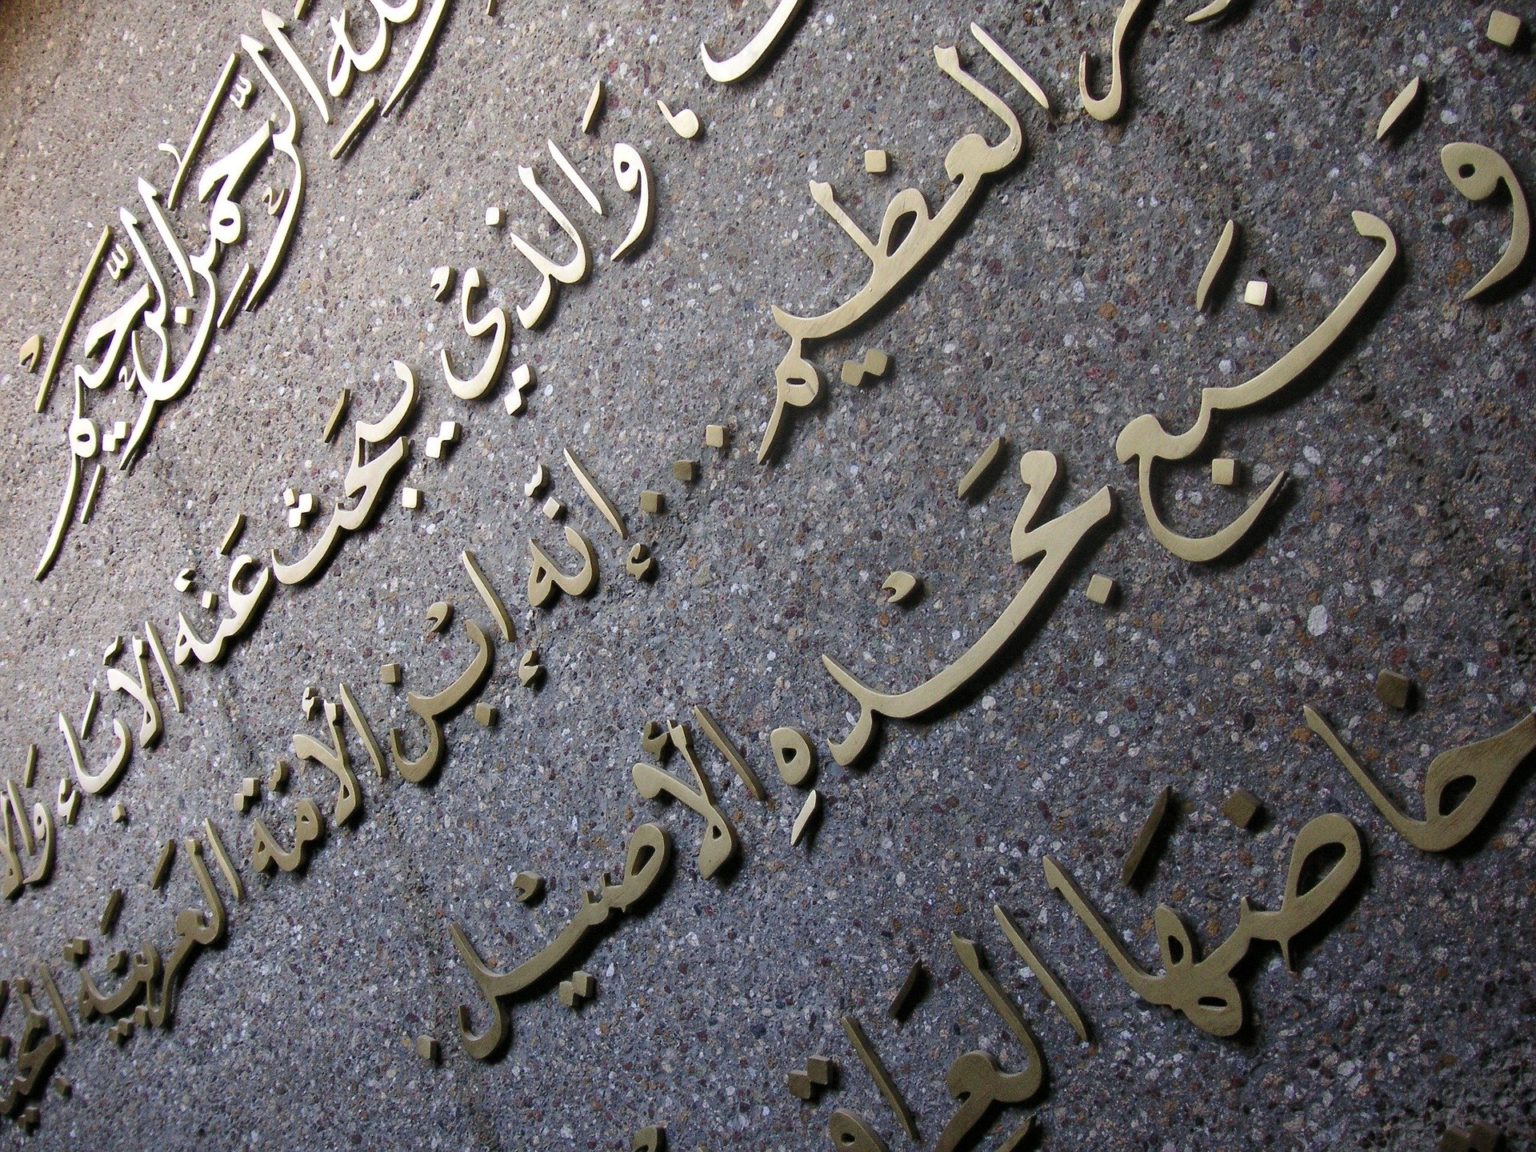 الله الرَّحمنِ الرَّحيمِ
وَالذّي يبحَث عَنْه الآبَاء وَالأ
العظيم .. إنّه إبْن الأمّة العَربيَّة
وَنَبَع مَجّده الأصيّل .
خاضَها العَراق